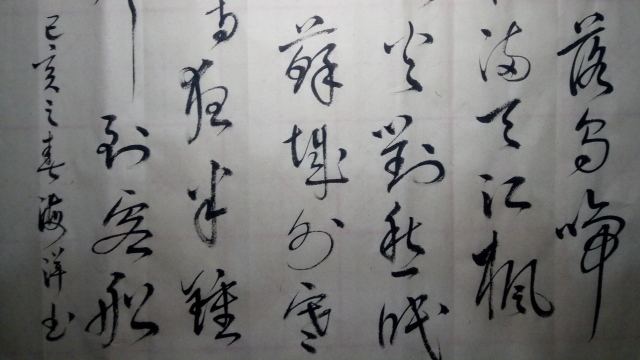 落烏啼
滿天江楓
火對愁眠
蘇城外寒
寺夜半鐘
到客船
己亥之春海洋书